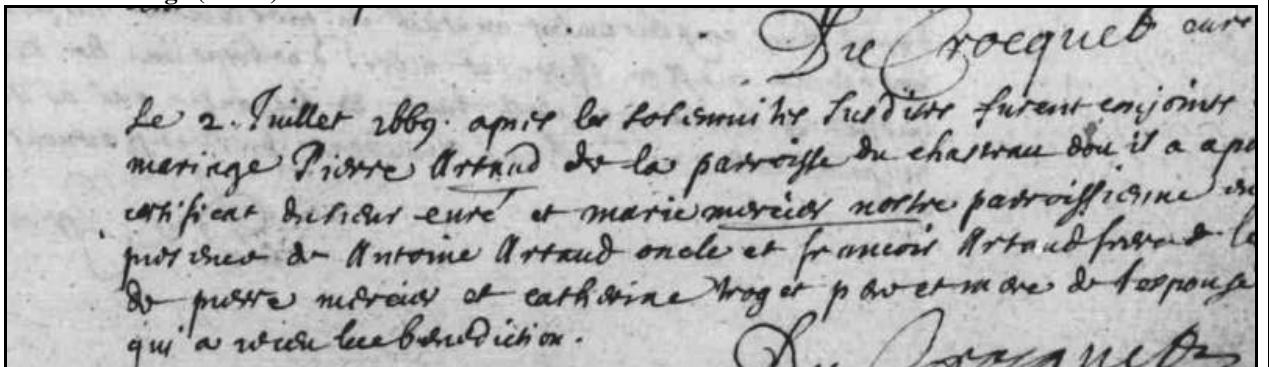 Du Crocquet curé
Le 2. Juillet 1669. apres les solemnites susdites furent conjoints
mariage Pierre Artaud de la parroisse du chasteau dou il a apo
certificat du sieur curé et marie mercier nostre parroissienne en
presence de Antoine Artaud oncle et francois Artaud frere de le
de pierre mercier et catherine troget pere et mere de lespouse
qui a receu la benediction.
Du Crocquet